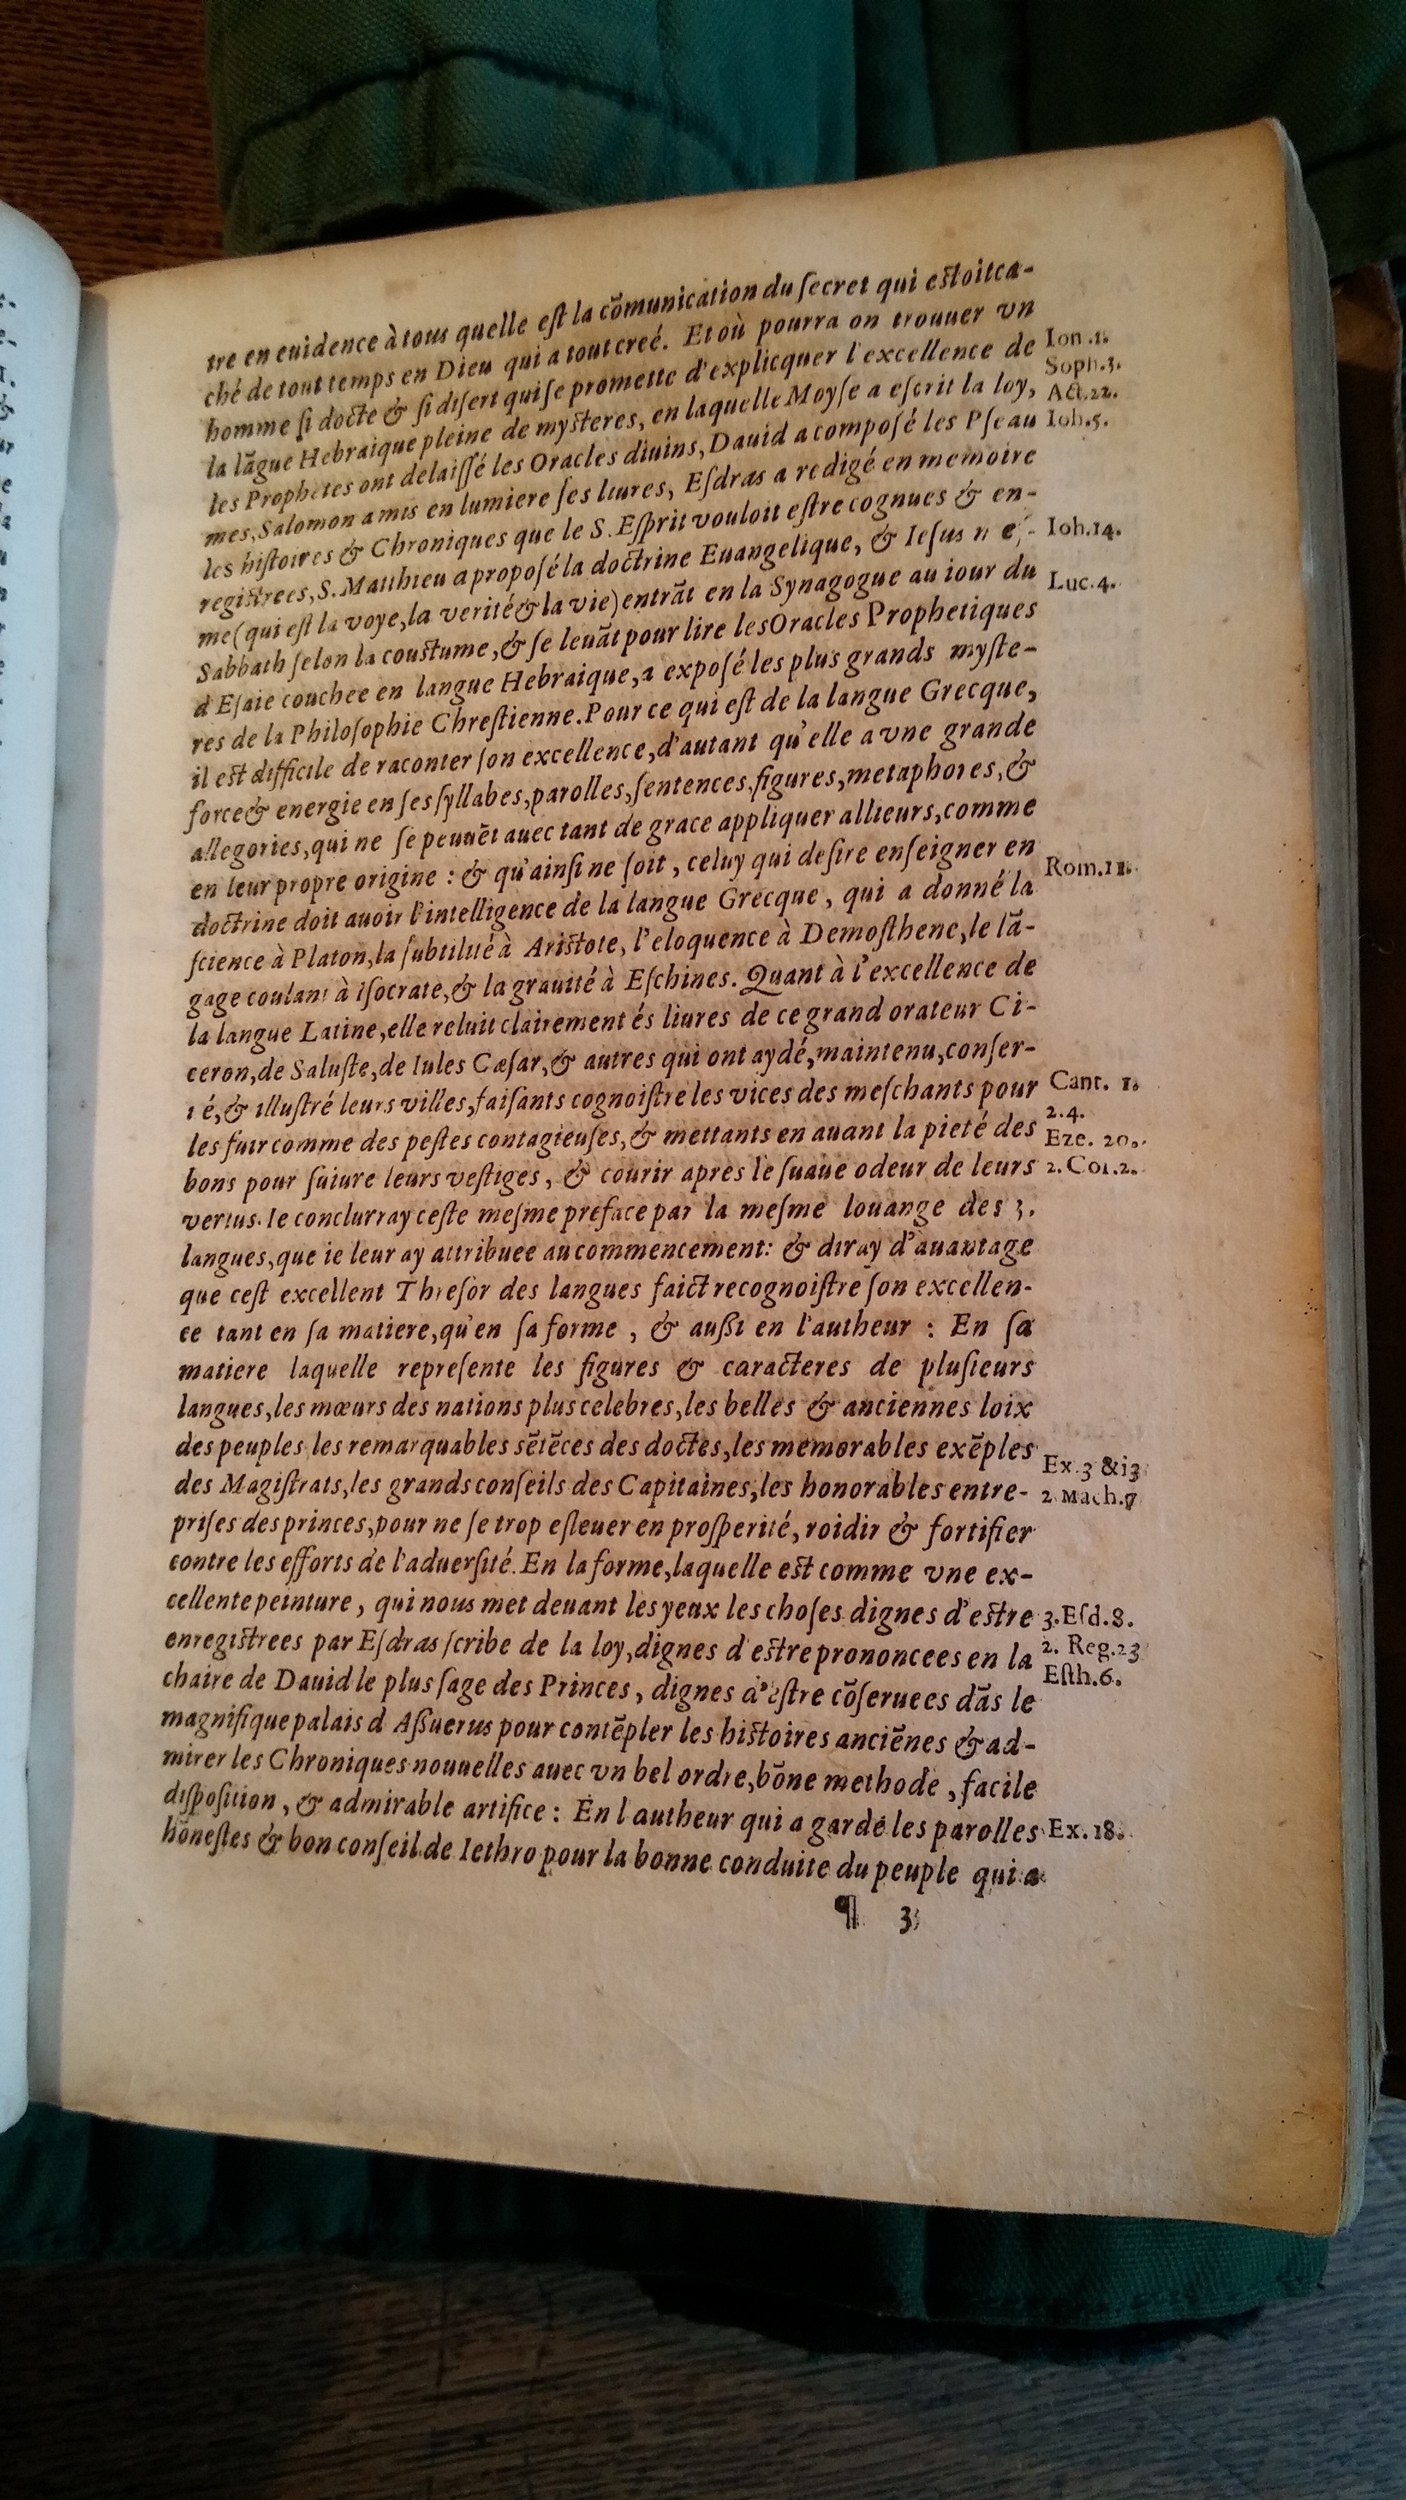 tre en euidence à tous quelle eſt la cõmunication du ſecret qui eſtoit ca-
ché de tout temps en Dieu qui a tout creé. Et où pourra on trouuer vn
homme ſi docte & ſi diſert qui ſe promette d'explicquer l'excellence de
la lãgue Hebraique pleine de myſteres, en laquelle Moyſe a eſcrit la loy,
les Prophetes ont delaiſſé les Oracles diuins, Dauid a compoſé les Pſeau
mes, Salomon a mis en lumiere ſes liures, Eſdras a redigé en memoire
les hiſtoires & Chroniques que le S. Eſprit vouloit eſtre cognues & en-
regiſtrees, S. Matthieu a propoſé la doctrine Euangelique, & Ieſus
me (qui eſt la voye, la verité & la vie) entrãt en la Synagogue au iour du
Sabbath ſelon la couſtume, & ſe leuãt pour lire les Oracles Prophetiques
d'Eſaie couchee en langue Hebraique, a expoſé les plus grands myſte-
res de la Philoſophie Chreſtienne. Pour ce qui eſt de la langue Grecque,
il eſt difficile de raconter ſon excellence, d'autant qu'elle a vne grande
force & energie en ſes ſyllabes, parolles, ſentences, figures, metaphores, &
allegories, qui ne ſe peuuẽt auec tant de grace appliquer allieurs, comme
en leur propre origine : & qu'ainſi ne ſoit, celuy qui deſire enſeigner en
doctrine doit auoir l'intelligence de la langue Grecque, qui a donné la
ſcience à Platon, la ſubtilité à Ariſtote, l'eloquence à Demoſthene, le lã-
gage coulant à Iſocrate, & la grauité à Eſchines. Quant à l'excellence de
la langue Latine, elle reluit clairement és liures de ce grand orateur Ci-
ceron, de Saluſte, de Iules Cæſar, & autres qui ont aydé, maintenu, conſer-
ué, & illuſtré leurs villes, faiſants cognoiſtre les vices des meſchants pour
les fuir comme des peſtes contagieuſes, & mettants en auant la pieté des
bons pour ſuiure leurs veſtiges, & courir apres le ſuaue odeur de leurs
vertus. Ie conclurray ceſte meſme preface par la meſme louange des 3.
langues, que ie leur ay attribuee au commencement: & diray d'auantage
que ceſt excellent Threſor des langues faict recognoiſtre ſon excellen-
ce tant en ſa matiere, qu'en ſa forme, & außi en l'autheur : En ſa
matiere laquelle repreſente les figures & caracteres de pluſieurs
langues, les mœurs des nations plus celebres, les belles & anciennes loix
des peuples les remarquables sẽtẽces des doctes, les memorables exẽples
des Magiſtrats, les grands conſeils des Capitaines, les honorables entre-
priſes des princes, pour ne ſe trop eſleuer en proſperité, roidir & fortifier
contre les efforts de l'aduerſité. En la forme, laquelle eſt comme vne ex-
cellente peinture, qui nous met deuant les yeux les choſes dignes d'eſtre
enregiſtrees par Eſdras ſcribe de la loy, dignes d'eſtre prononcees en la
chaire de Dauid le plus ſage des Princes, dignes d'eſtre cõſeruees dãs le
magnifique palais d'Aßuerus pour contẽpler les hiſtoires anciẽnes & ad-
mirer les Chroniques nouuelles auec vn bel ordre, bõne methode, facile
diſpoſition, & admirable artifice : En l'autheur qui a gardé les parolles
hõneſtes & bon conſeil de Iethro pour la bonne conduite du peuple qui a
¶ 3
Ion.1.
Soph.3.
Act.22.
Ioh.5.
Ioh.14.
Luc.4.
Rom.11.
Cant. 1.
2.4.
Eze. 20.
2.Cor.2.
Ex.3 &13
2 Mach.7
3.Eſd.8.
2. Reg.23
Eſth.6.
Ex.18.